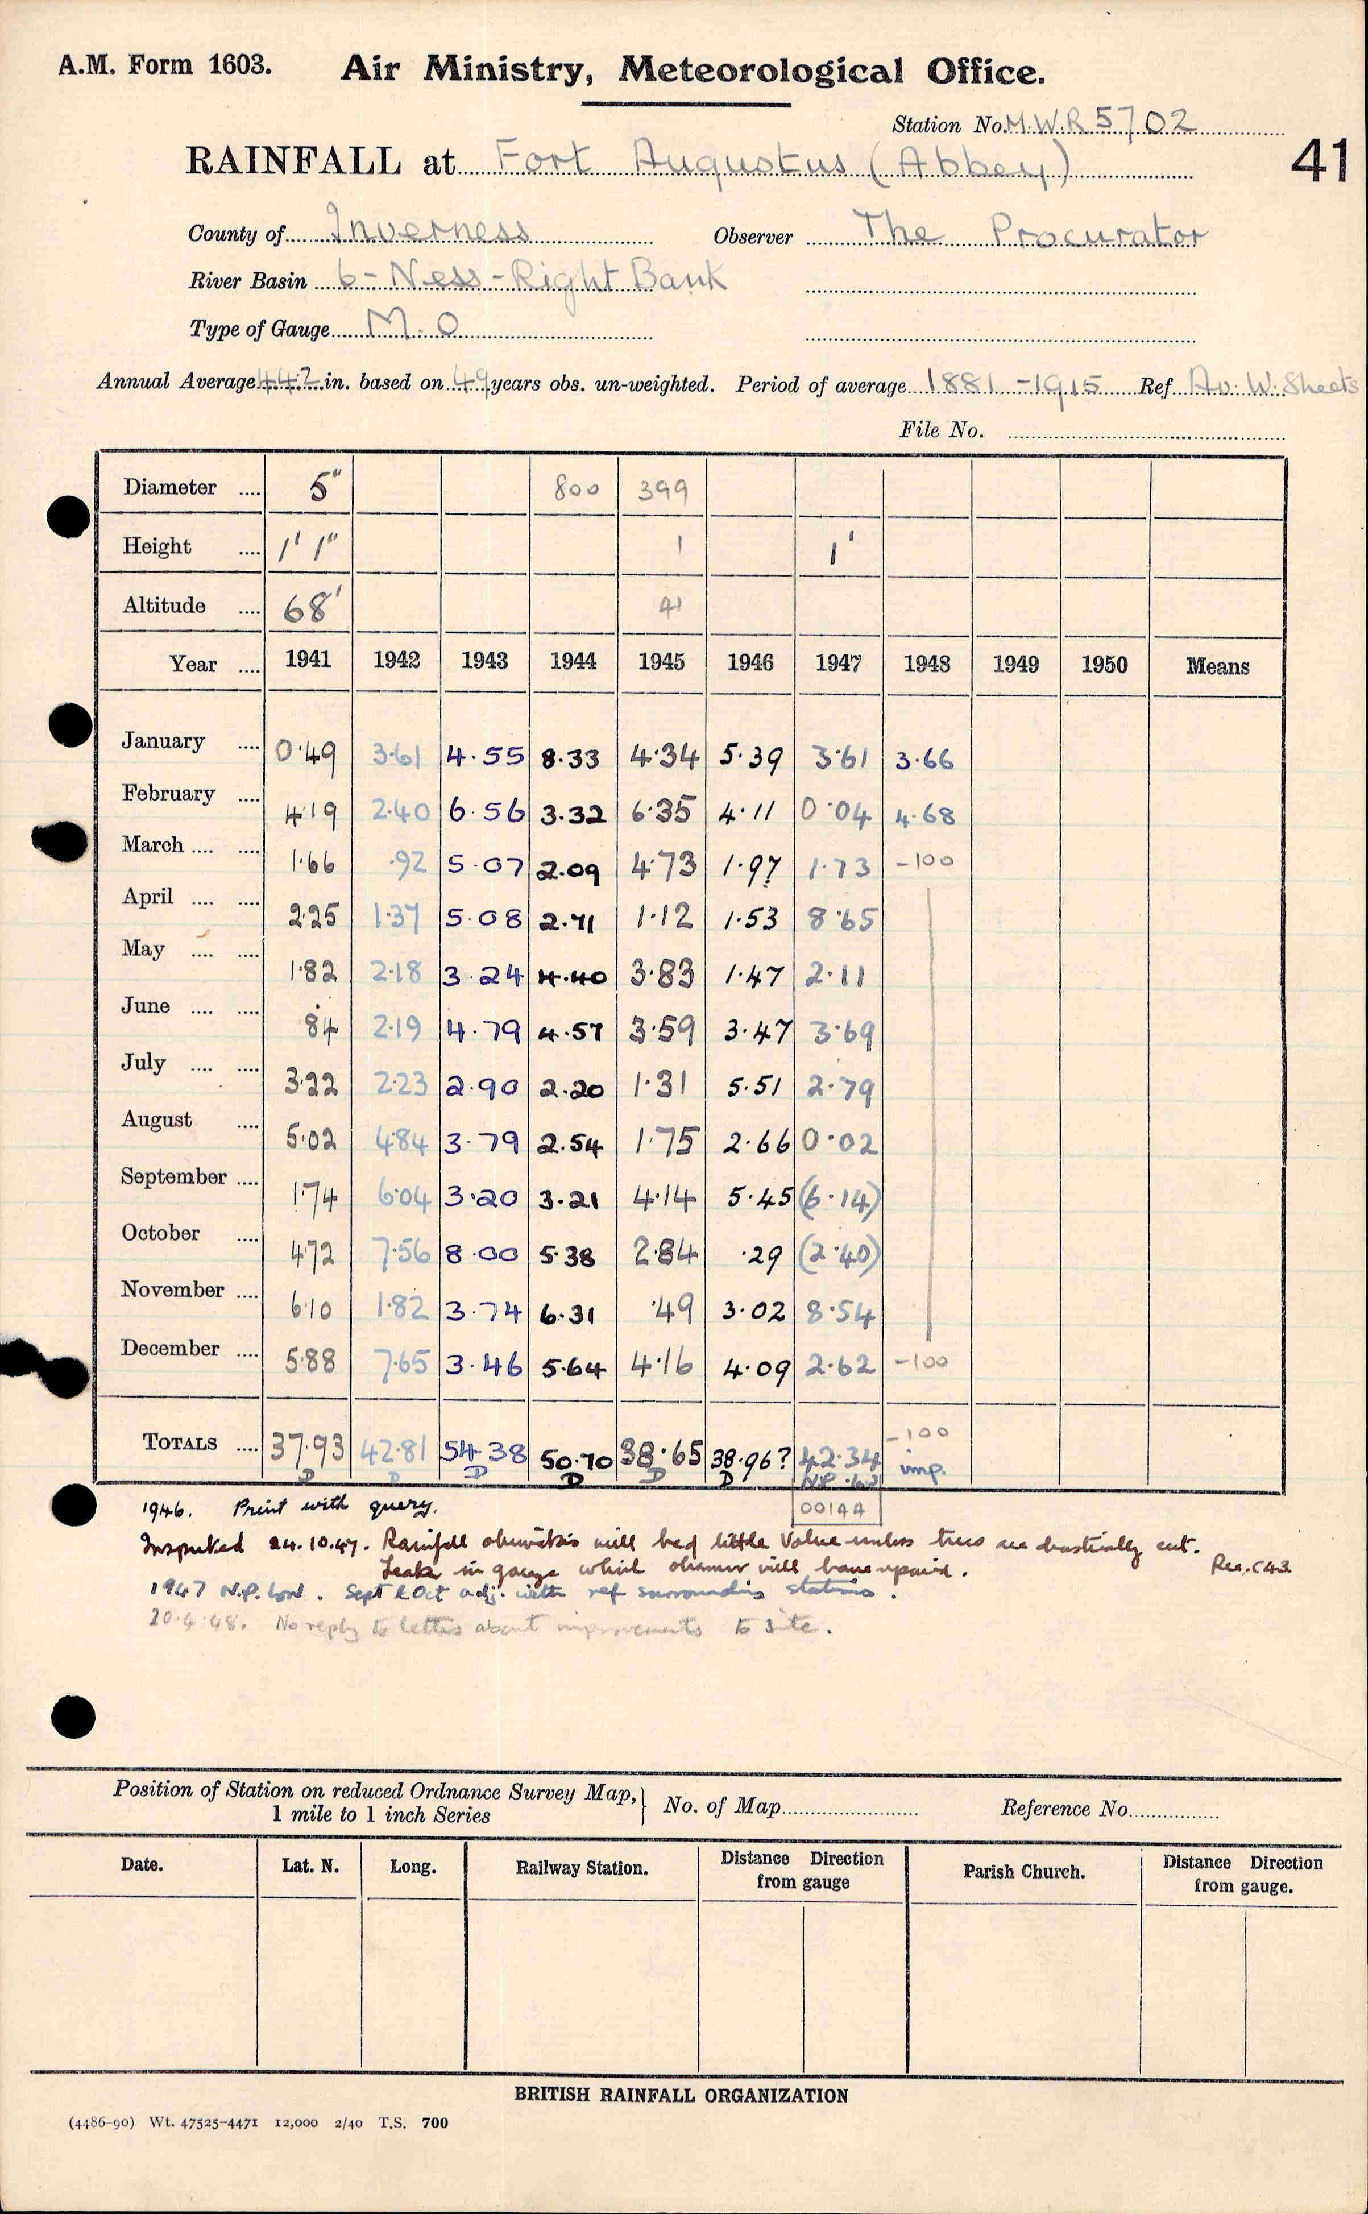 A.M. Form 1603. Air Ministry, Meteorological Office.
Station No. M.W.R 5702
41
RAINFALL at Fort Augustus (Abbey)
County of Inverness Observer The Procurator
River Basin 6-Ness-Right Bank
Type of Gauge M.O
Annual Average 44.2 in. based on 49 years obs. un-weighted. Period of average 1881-1915 Ref. Av. W. Sheets
File No.
Diameter .... 5" 800 399
Height .... 1' 1" 1 1'
Altitude .... 68' 41
Year .... 1941 1942 1943 1944 1945 1946 1947 1948 1949 1950 Means
January .... 0.49 3.61 4.55 8.33 4.34 5.39 3.61 3.66
February .... 4.19 2.40 6.56 3.32 6.35 4.11 0.04 4.68
March .... .... 1.66 .92 5.07 2.09 4.73 1.97 1.73 -100
April .... .... 2.25 1.37 5.08 2.71 1.12 1.53 8.65
May .... .... 1.82 2.18 3.24 4.40 3.83 1.47 2.11
June .... .... .84 2.19 4.79 4.57 3.59 3.47 3.69
July .... .... 3.22 2.23 2.90 2.20 1.31 5.51 2.79
August .... 5.02 4.84 3.79 2.54 1.75 2.66 0.02
September .... 1.74 6.04 3.20 3.21 4.14 5.45 (6.14)
October .... 4.72 7.56 8.00 5.38 2.84 .29 (2.40)
November .... 6.10 1.82 3.74 6.31 .49 3.02 8.54
December .... 5.88 7.65 3.46 5.64 4.16 4.09 2.62 -100
TOTALS .... 37.93 42.81 54.38 50.70 38.65 38.96? 42.34 -100
D D D D D D N.P. imp.
00144
1946. Print with query.
Inspected 24.10.47. Rainfall will be of little value unless trees are drastically cut.
Leak in gauge which observer will have repaired. Rec. C43
1947 N.P. low. Sept & Oct adj. with ref surrounding stations.
20.4.48. No reply to letter about improvements to site.
Position of Station on reduced Ordnance Survey Map, 1 mile to 1 inch Series } No. of Map Reference No.
Date. Lat. N. Long. Railway Station. Distance Direction from gauge Parish Church. Distance Direction from gauge.
BRITISH RAINFALL ORGANIZATION
(4486-90) Wt. 47525-4471 12,000 2/40 T.S. 700